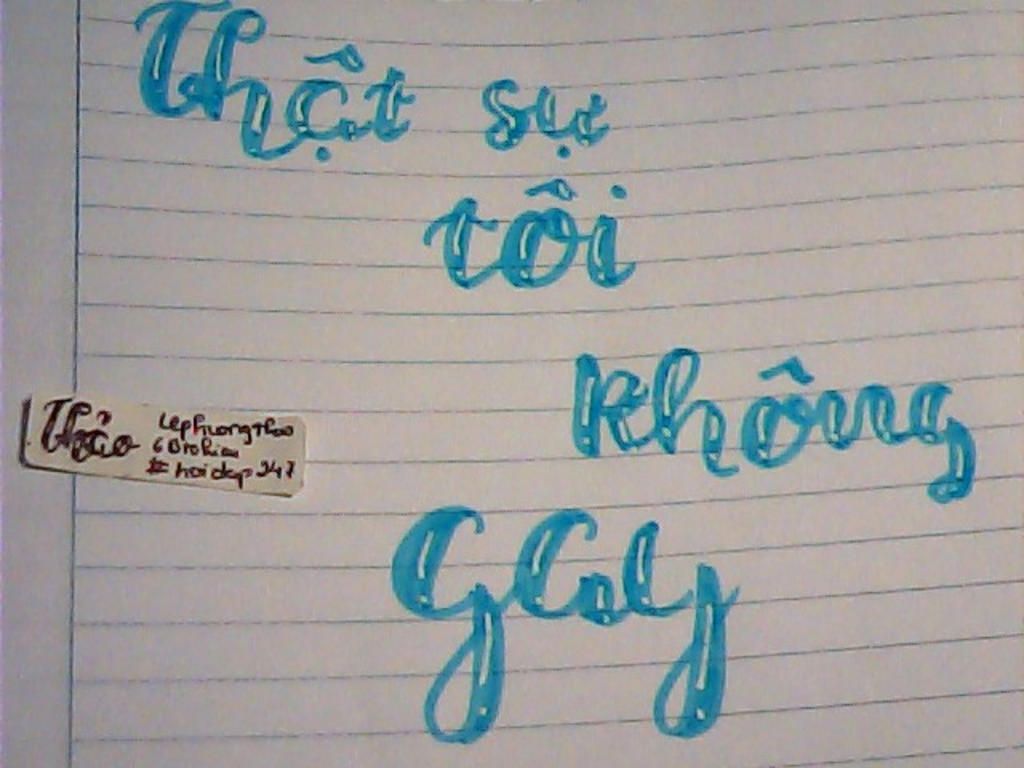 Thật sự
tôi
không
GCLY
Thảo
LePhuongThao
6BroHieu
#hoidap247